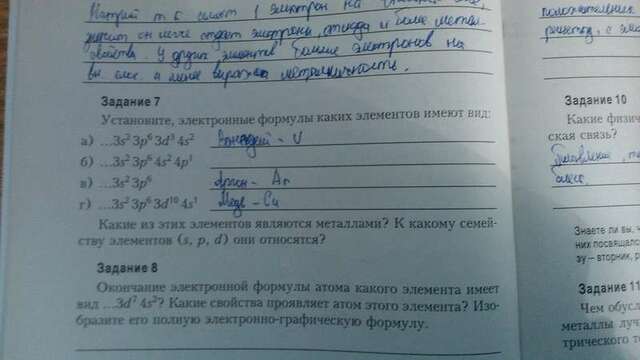 Натрий т к имеет 1 электрон на
значит он легче отдаёт электроны, отсюда и более метал-
свойства. У других элементов больше электронов на
вн. слое и менее выражена металличность.
Задание 7
Установите, электронные формулы каких элементов имеют вид:
а) ...3s² 3p⁶ 3d³ 4s² Ванадий - V
б) ...3s² 3p⁶ 4s² 4p¹
в) ...3s² 3p⁶ Аргон - Ar
г) ...3s² 3p⁶ 3d¹⁰ 4s¹ Медь - Cu
Какие из этих элементов являются металлами? К какому семей-
ству элементов (s, p, d) они относятся?
Задание 8
Окончание электронной формулы атома какого элемента имеет
вид ...3d⁷ 4s²? Какие свойства проявляет атом этого элемента? Изо-
бразите его полную электронно-графическую формулу.
Задание 10
Какие физич
ская связь?
блеск.
Знаете ли вы, ч
них посвящалс
зу – вторник, р
Задание 11
Чем обусл
металлы луч
трического т